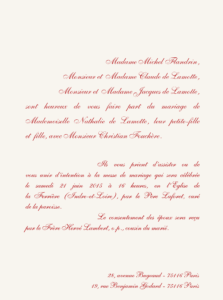 Madame Michel Flandrin,
Monsieur et Madame Claude de Lamotte,
Monsieur et Madame Jacques de Lamotte,
sont heureux de vous faire part du mariage de
Mademoiselle Nathalie de Lamotte, leur petite-fille
et fille, avec Monsieur Christian
Ils vous prient d'assister ou de
vous unir d'intention à la messe de mariage qui sera célébrée
le samedi 21 juin 2015 à 16 heures, en l'Église de
la Ferrière (Indre-et-Loire), par le Père Lafort, curé
de la paroisse.
Le consentement des époux sera reçu
par le Frère Henri Lambert, o.p., cousin du marié.
28, avenue - 75116 Paris
19, rue Benjamin Godard - 75116 Paris